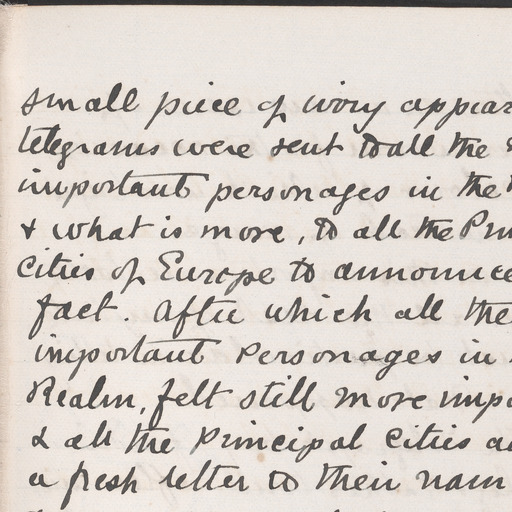 small piece of ivory appear
telegrams were sent to all the
important personages in the
& what is more, to all the Prin
Cities of Europe to announce
fact. After which all the
important Personages in
Realm, felt still more impo
& all the Principal Cities a
a fresh letter to their nam